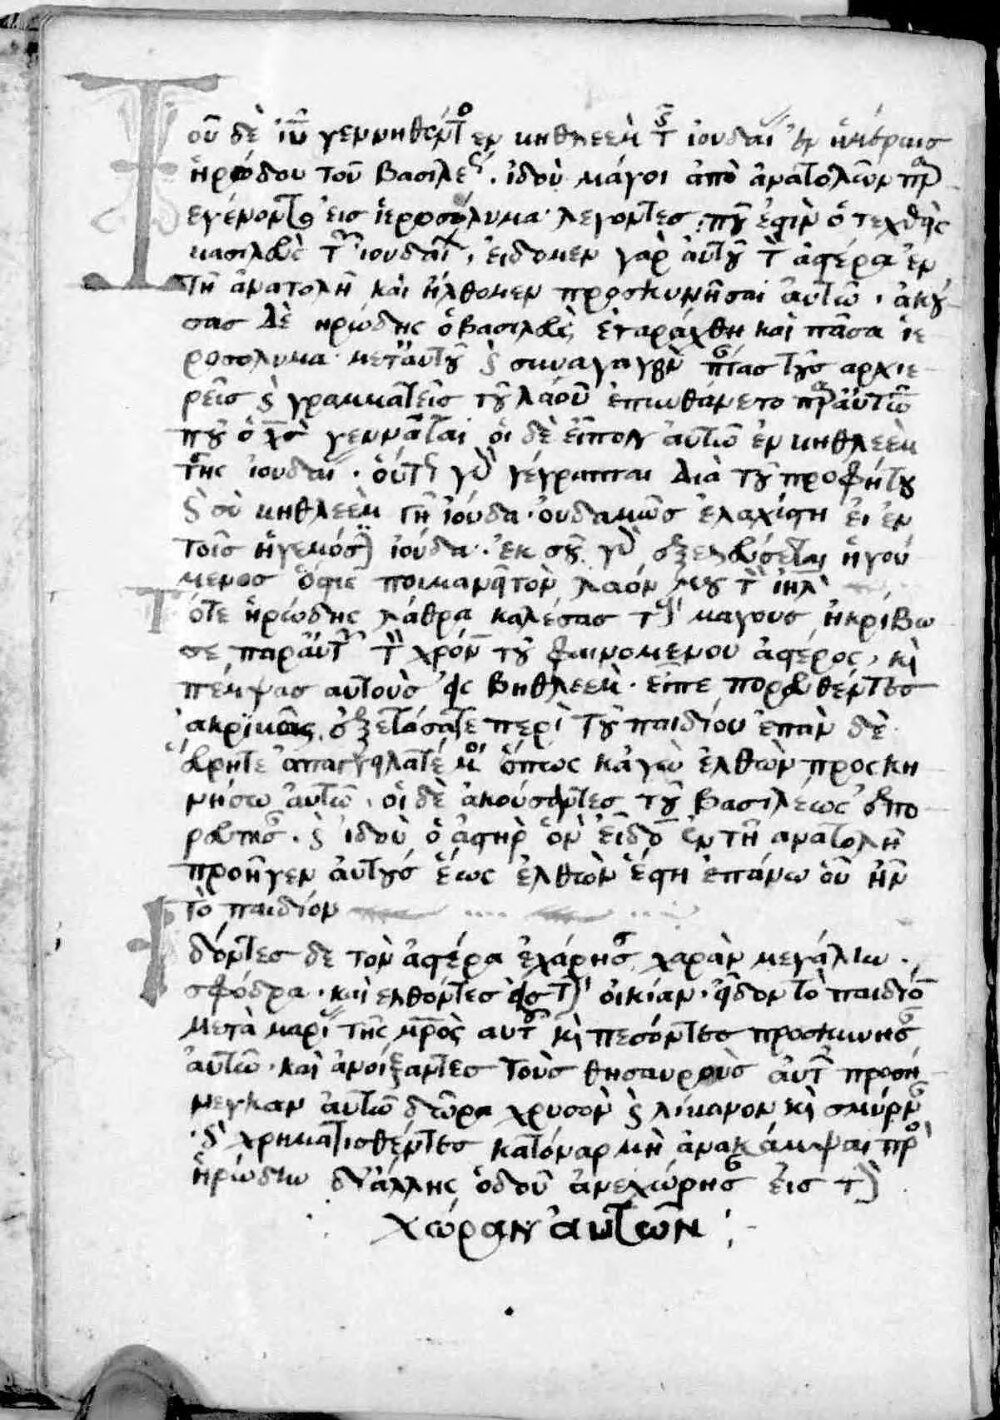 Τοῦ δὲ ἰῦ γεννηθέντο ἐν βηθλεὲμ τῆς ἰουδαί ἐν ἡμέραις
ἡρώδου τοῦ βασιλέ. ἰδοὺ μάγοι ἀπὸ ἀνατολῶν παρ
εγένοντο εις ἱεροσόλυμα λέγοντες. ποῦ ἐστὶν ὁ τεχθεὶς
βασιλεὺς τῶν ἰουδαί, εἴδομεν γὰρ αὐτοῦ τὸν ἀστέρα ἐν
τῆ ἀνατολῆ καὶ ἤλθομεν προσκυνῆσαι αὐτῶ. ἀκού
σας δὲ ηρώδης ὁ βασιλεὺς ἐταράχθη καὶ πᾶσα ἱε
ροσολυμα μετ αυτοῦ ϗ συναγαγὼν πάντας τοὺς αρχιε
ρεῖς ϗ γραμματεῖς τοῦ λαοῦ ἐπυνθάνετο παρ αὐτῶν
ποῦ ὁ χσ γεννᾶται οἱ δὲ εἶπον αὐτῶ ἐν βηθλεὲμ
τῆς ἰουδαί. οὕτ γὰρ γέγραπται διὰ τοῦ προφήτου
ϗ σὺ βηθλεὲμ γῆ ἰούδα. οὐδαμῶς ἐλαχίστη εἶ ἐν
τοῖς ἡγεμόσιν ἰούδα. ἐκ σοῦ γὰρ ἐξελεύσεται ἡγού
μενος ὅστις ποιμανεῖ τὸν λαόν μου τὸν ιηλ
Τότε ἡρώδης λάθρα καλέσας τοὺς μαγους ἠκρίβω
σε παρ αὐτῶν τὸν χρόνον τοῦ φαινομενου ἀστέρος, κὶ
πέμψας αυτοὺς εἰς βηθλεὲμ. εἶπε πορευθέντες
ἀκριβῶς ἐξετάσατε περὶ τοῦ παιδίου ἐπὰν δὲ
εὕρητε ἀπαγγείλατέ μοι ὅπως κἀγὼ ἐλθὼν προσκυ
νήσω αὐτῶ. οἱ δὲ ἀκούσαντες τοῦ βασιλέως ἐπο
ρεύθησ. ϗ ἰδοὺ ὁ ἀστὴρ ὃν εἶδο ἐν τῆ ανατολῆ
προῆγεν αὐτοὺς ἕως ἐλθὼν ἔστη ἐπάνω οὗ ἦν
τὸ παιδίον
Ἰδόντες δε τὸν ἀστέρα ἐχάρησ χαρὰν μεγάλην.
σφόδρα. καὶ ελθόντες εἰς τὴν οἰκίαν. εἶδον τὸ παιδίον
μετὰ μαρί τῆς μρὸς αυτοῦ κὶ πεσόντες προσεκύνησ
αὐτῶ. καὶ ἀνοίξαντες τοὺς θησαυροὺς αὐτ προσή
νεγκαν αὐτῶ δῶρα χρυσὸν ϗ λίβανον κὶ σμύρν
ϗ χρηματισθέντες κατόναρ μὴ ἀνακάμψαι πρ
ἡρώδην δι ἄλλης ὁδοῦ ἀνεχώρησ εἰς τὴν
χώραν αὐτῶν